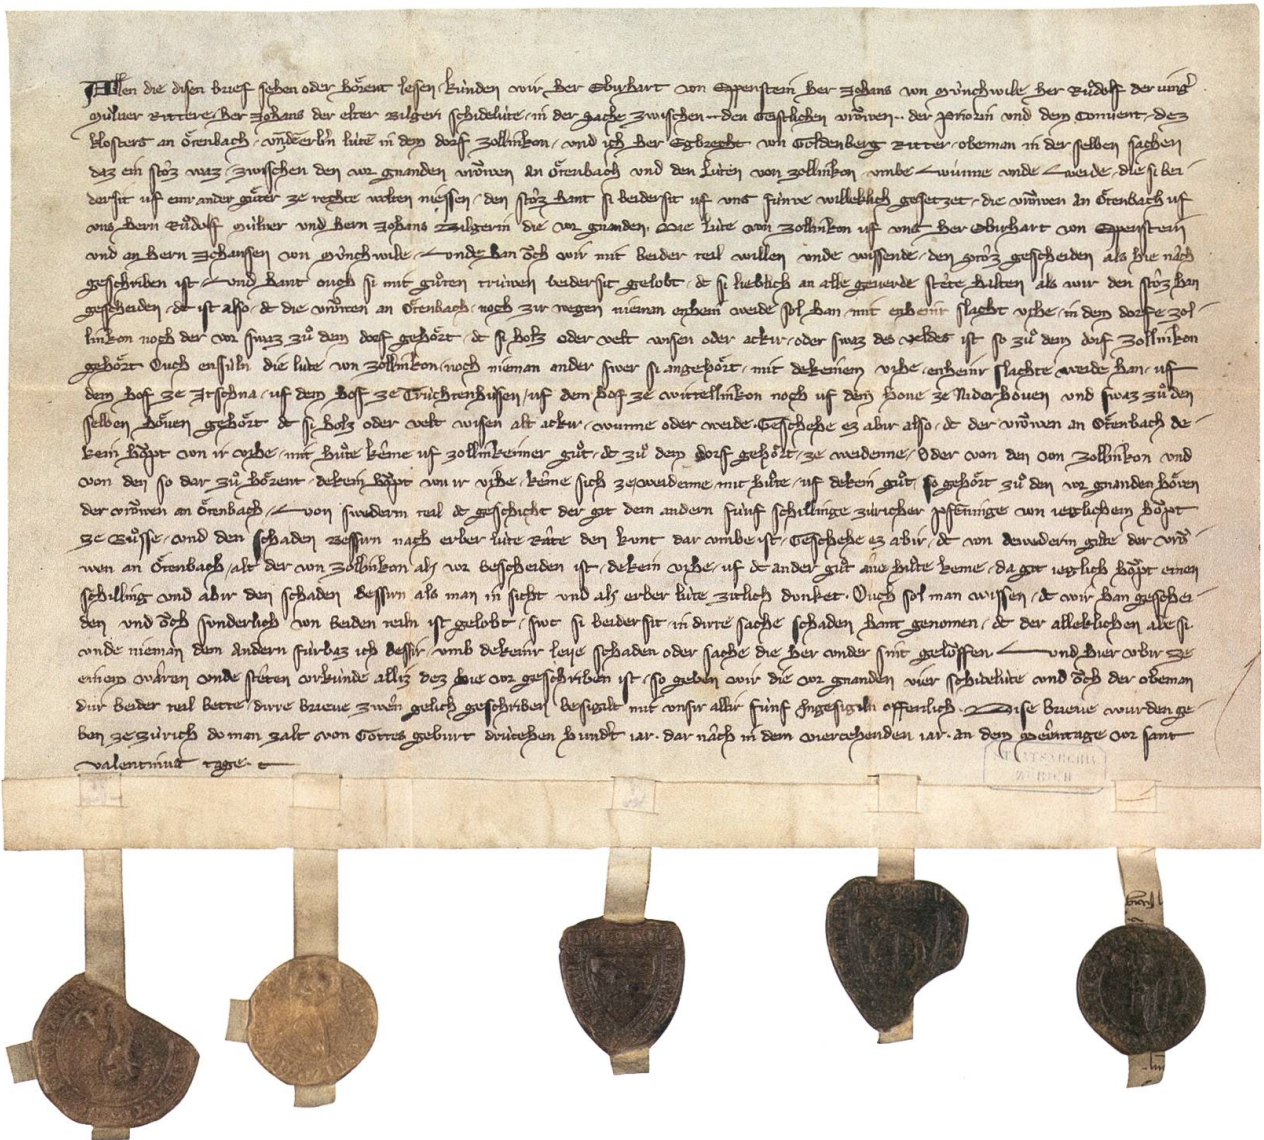 Allen die disen brief sehen oder hoͤrent lesen kúnden wir her Ebirhart von Eppenstein her Johans von Múnchwile her Ruͦdolf der
Múlner Rittere her Johans der elter Bilgeri schidelúte in der sache zwischen den Geistlichen vroͮwen der Priorin und dem Convent dez
klosters an Oͤtenbach und lúten in dem dorf Zollinkon und ich her Egbrecht von Goldenberg Ritter obeman in der selben sachen
daz ein stoͤz waz zwisschen den vor gnanden vroͮwen an Oͤtenbach und den Lúten von Zollinkon umbe wunne unde weide die si bei
dersit uf einr ander guͤter ze rechte wolten niessen den stoͤz hant si beidersit uf uns fúnve willeklich gesetzet die vroͮwen an Oͤtenbach uf
uns hern Ruͦdolf Múlner und hern Johans Bilgerin die vor gnanden die lúte von Zollinkon uf uns her Ebirhart von Eppenstein
und an hern Johansen von Múnchwile unde han oͮch wir mit beider teil willen unde wissende den stoͤz gescheiden als hie nâch
geschriben ist und hant ouch si mit guͦten trúwen beidersit gelobt dc si lieblich an alle geverde stête halten als wir den stoͤz han
gescheiden dc ist also dc die vroͮwen an Oͤtenbach noch zir wegen nieman enhein weide sol han mit enheinr slacht vihe in dem dorfe Zol
linkon noch der vor swaz zuͦ dem dorf gehoͤrt dc si holz oder velt wisen oder ackir oder swaz des veldes ist so zuͦ dem dorf Zollinkon
gehoͤrt Ouch ensúln die lúte von Zollinkon noch nieman ander swer si angehoͤrt mit dekeinem vihe enheinr slachte weide han uf
dem hof ze Itschna uf dem hof ze Trúchtenhusen uf dem hof ze Wittellinkon noch uf dem hove ze Niderhoven und swaz zuͦ den
selben hoͤven gehoͤrt dc si holz oder velt wisen alt ackir wunne oder weide Geschehe ez abir also dc der vroͮwen an Oͤtenbach de
kein hoͮpt von ir vihe mit huͦte kême uf Zollinkeinner guͦt dc zuͦ dem dorf gehoͤrt ze weidenne Oder von den von Zollinkon und
von den so dar zuͦ hoͤrent dekein hoͮpt von ir vihe kême sich ze weidenne mit huͦte uf dekein guͦt so gehoͤrt zuͦ den vor gnanden hoͤven
der vroͮwen an Oͤtenbach von swederm teil dc geschicht der git dem andern fúnf schillinge zúricher pfenninge von ieglichem hoͮpt
ze buͦsse und den schaden bessirn nach erber lúte râte den kunt dar umbe ist Geschehe ez abir dc von dewederm der vroͮ
wen an Oͤtenbach alt der von Zollinkon als vor bescheiden ist dekein vihe uf dc ander guͦt ane huͦte keme da git ieglich hoͮpt einen
schilling und abir den schaden bessirn als man in sicht und als erber lúte zitlich dunket Ouch sol man wissen dc wir han geschei
den und oͮch sunderlich von beiden teiln ist gelobt swc si beidersit in dirre sache schaden hant genomen dc der alleklichen abe si
unde nieman dem andern fúrbaz ich bessir umb dekeinr leije schaden oder sache die her under sint geloͮffen und hier ubir ze
einem wâren unde stêten urkúnde alliz dez hie vor geschriben ist so geben wir die vor gnanden vier schidelúte und oͮch der obeman
dur beider teil bette dirre brieve zwên gelich geschriben besigelt mit unsir allir fúnf Ingesigiln offenlich Dise brieve wurden ge
ben ze Zúrich do man zalt von Gottes geburt drúcehen hundert iar dar nâch in dem viercehenden iar an dem mêntage vor sant
Valentinus tage
STAATSARCHIV
ZÜRICH